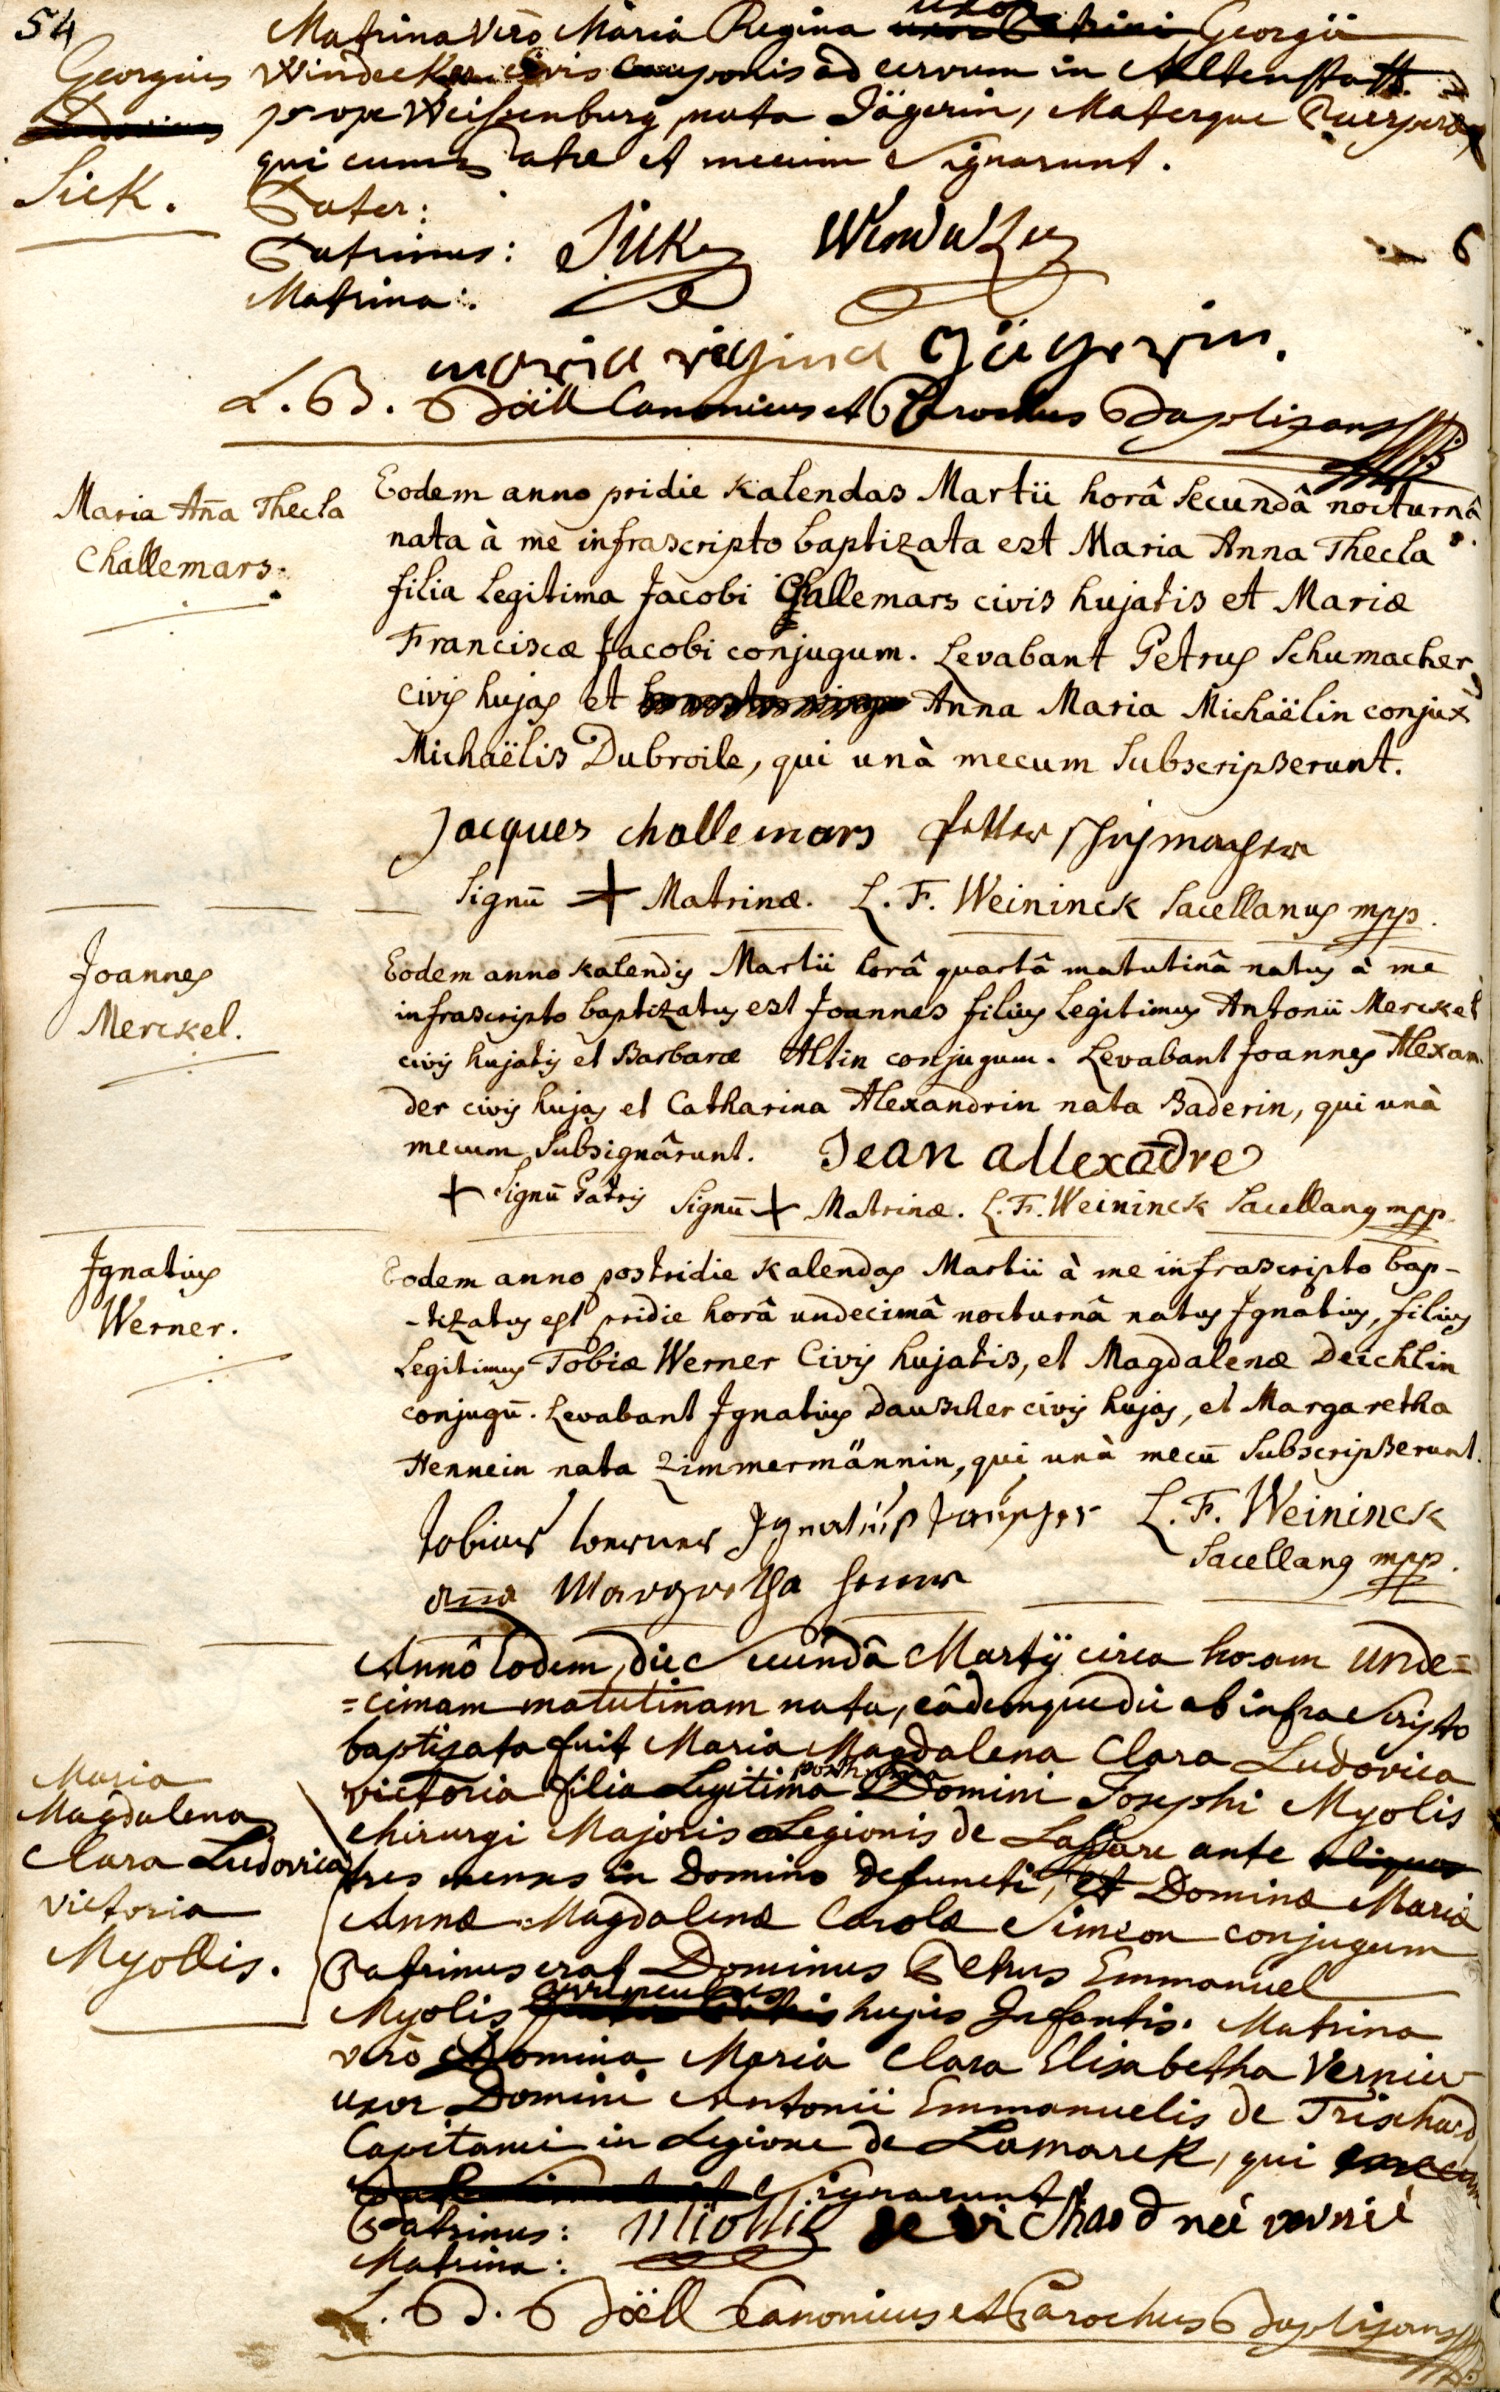 54
Matrina verò Maria Regina uxor Georgii
Georgius
Windecker civis cauponis ad cervum in Altenstatt
prope Weissenburg, nata Jägerin, Materque Puerperæ
qui cum Patre et mecum Signarunt.
Sick.
Pater:
Patrinus: Sick Windecker
Matrina:
maria regina Jägerin.
L. B. Böll Canonicus et Parochus Baptizans
Maria Aña Thecla
Challemars.
Eodem anno pridie Kalendas Martii horâ Secundâ nocturnâ
nata à me infrascripto baptizata est Maria Anna Thecla
filia Legitima Jacobi Challemars civis hujatis et Mariæ
Franciscæ Jacobi conjugum. Levabant Petrus Schumacher
civis hujas et Anna Maria Michaëlin conjux
Michaëlis Dubroile, qui unà mecum Subscripserunt.
Jacques challemars petter schumacher
Signũ + Matrinæ. L. F. Weininck Sacellanus mpp.
Joannes
Merckel.
Eodem anno Kalendis Martii horâ quartâ matutinâ natus à me
infrascripto baptizatus est Joannes filius Legitimus Antonii Merckel
civis hujatis et Barbaræ Altin conjugum. Levabant Joannes Alexan
der civis hujas et Catharina Alexandrin nata Baderin, qui unà
mecum Subsignârunt. Jean allexãdre
+ Signũ Patris Signũ + Matrinæ. L. F. Weininck Sacellanus mpp.
Ignatius
Werner.
Eodem anno postridie Kalendas Martii à me infrascripto bap-
-tizatus est pridie horâ undecimâ nocturnâ natus Ignatius, filius
Legitimus Tobiæ Werner Civis hujatis, et Magdalenæ Deichlin
conjugũ. Levabant Ignatius Dauscher civis hujas, et Margaretha
Hennein nata Zimmermännin, qui unà mecũ Subscripserunt.
Tobias werner Ignatius L. F. Weininck
Sacellanus mpp.
aña Margretha
Annô Eodem, die Secundâ Martÿ circa horam unde=
=cimam matutinam nata, eâdemque die ab infra Scripto
baptizata fuit Maria Magdalena Clara Ludovica
posthuma
victoria filia Legitima Domini Josephi Myolis
Chirurgi Majoris Legionis de Lassare ante aliquos
tres menses in Domino defuncti, et Dominæ Mariæ
Annæ Magdalenæ Carolæ Simeon conjugum
Maria
Magdalena
Clara Ludovica
victoria
Myollis.
Patrinus erat Dominus Petrus Emmanuel
Myolis hujus Infantis. Matrina
verò Domina Maria Clara Elisabetha Vernier
uxor Domini Antonii Emmanuelis de Trischard
Capitanei in Legione de Lamarck, qui
Signarunt
Patrinus: Miollis de chard neé
Matrina:
L. B. Böll Canonicus et Parochus Baptizans